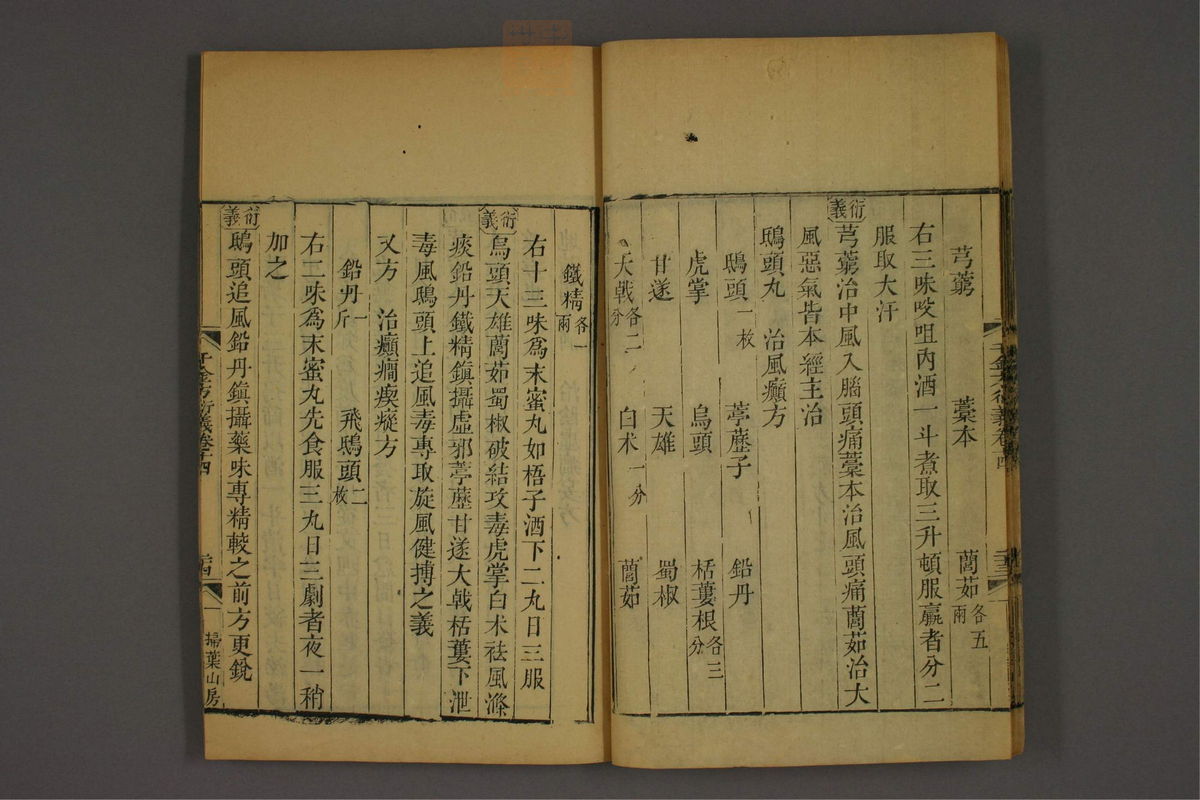 芎藭 藁本 䕡茹各五兩
右三味㕮咀內酒一斗煮取三升頓服羸者分二
服取大汗
衍義 芎藭治中風入腦頭痛藁本治風頭痛䕡茹治大
風惡氣皆本經主治
鴟頭丸 治風癲方
鴟頭一枚 葶藶子 鉛丹
虎掌 烏頭 栝蔞根各三分
甘遂 天雄 蜀椒
大戟各二分 白术一分 䕡茹
鐵精各一兩
右十三味為末蜜丸如梧子酒下二丸日三服
衍義 烏頭天雄䕡茹蜀椒破結攻毒虎掌白术祛風滌
痰鉛丹鐵精鎮攝虛邪葶藶甘遂大戟栝蔞下泄
毒風鴟頭上追風毒專取旋風健搏之義
又方 治癲癇瘈瘲方
鉛丹一斤 飛鴟頭二枚
右二味為末蜜丸先食服三丸日三劇者夜一稍
加之
衍義 鴟頭追風鉛丹鎮攝藥味專精較之前方更銳
千金方衍義卷十四
掃葉山房